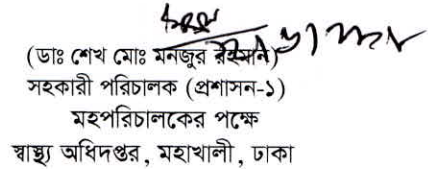 (ডাঃ শেখ মোঃ মনজুর রহমান)
সহকারী পরিচালক (প্রশাসন-১)
মহপরিচালকের পক্ষে
স্বাস্থ্য অধিদপ্তর, মহাখালী, ঢাকা